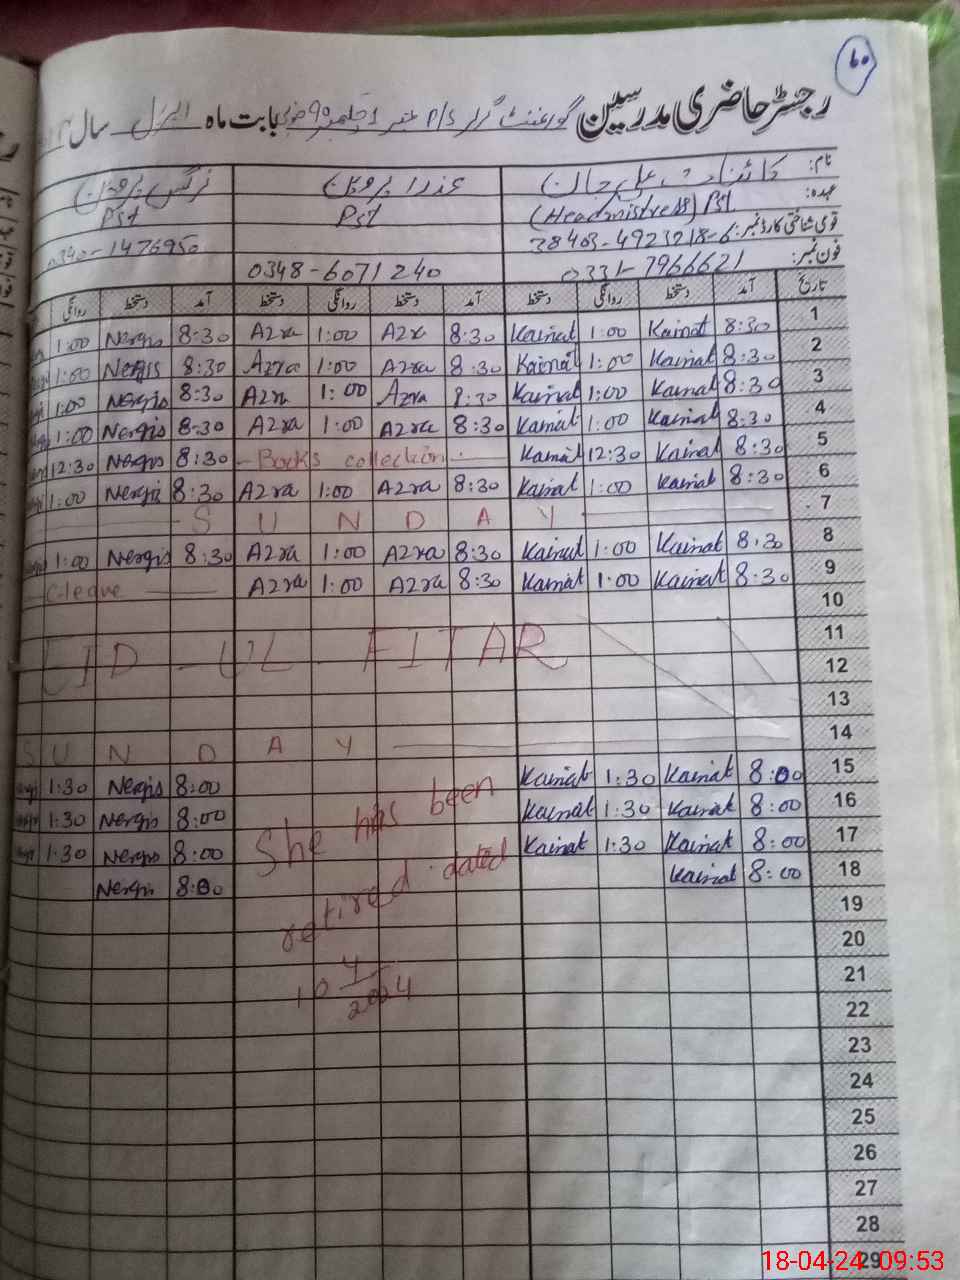 ۶۰
رجسٹر حاضری مدرسین گورنمنٹ گرلز P/S نمبر بابت ماہ اپریل سال
نام: کائنات علی جان عذرا پروین نرگس پروین
عہدہ: (Headmistress) Pst Pst Pst
قومی شناختی کارڈ نمبر: 38403-4923218-6 0340-1476950
فون نمبر: 0331-7966621 0348-6071240
تاریخ آمد دستخط روانگی دستخط آمد دستخط روانگی دستخط آمد دستخط روانگی
1 8:30 Kainat 1:00 Kainat 8:30 Azra 1:00 Azra 8:30 Nergis 1:00
2 8:30 Kainat 1:00 Kainat 8:30 Azra 1:00 Azra 8:30 Nergis 1:00
3 8:30 Kainat 1:00 Kainat 8:30 Azra 1:00 Azra 8:30 Nergis 1:00
4 8:30 Kainat 1:00 Kainat 8:30 Azra 1:00 Azra 8:30 Nergis 1:00
5 8:30 Kainat 12:30 Kainat - Books collection - 8:30 Nergis 12:30
6 8:30 Kainat 1:00 Kainat 8:30 Azra 1:00 Azra 8:30 Nergis 1:00
7 SUNDAY
8 8:30 Kainat 1:00 Kainat 8:30 Azra 1:00 Azra 8:30 Nergis 1:00
9 8:30 Kainat 1:00 Kainat 8:30 Azra 1:00 Azra C-leave
10
11
EID-UL FITAR
12
13
14 SUNDAY
15 8:00 Kainat 1:30 Kainat 8:00 Nergis 1:30
16 8:00 Kainat 1:30 Kainat 8:00 Nergis 1:30
17 8:00 Kainat 1:30 Kainat 8:00 Nergis 1:30
18 8:00 Kainat 8:00 Nergis
She has been
retired dated
10 4/2024
19
20
21
22
23
24
25
26
27
28
29
18-04-24 09:53